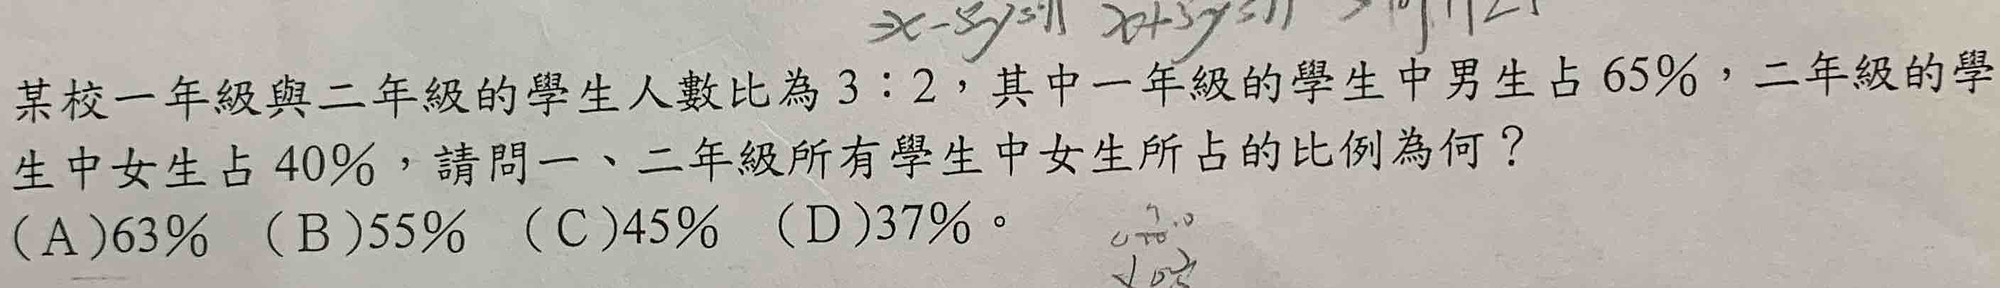 某校一年級與二年級的學生人數比為 3：2，其中一年級的學生中男生占 65%，二年級的學
生中女生占 40%，請問一、二年級所有學生中女生所占的比例為何？
（A）63% （B）55% （C）45% （D）37%。